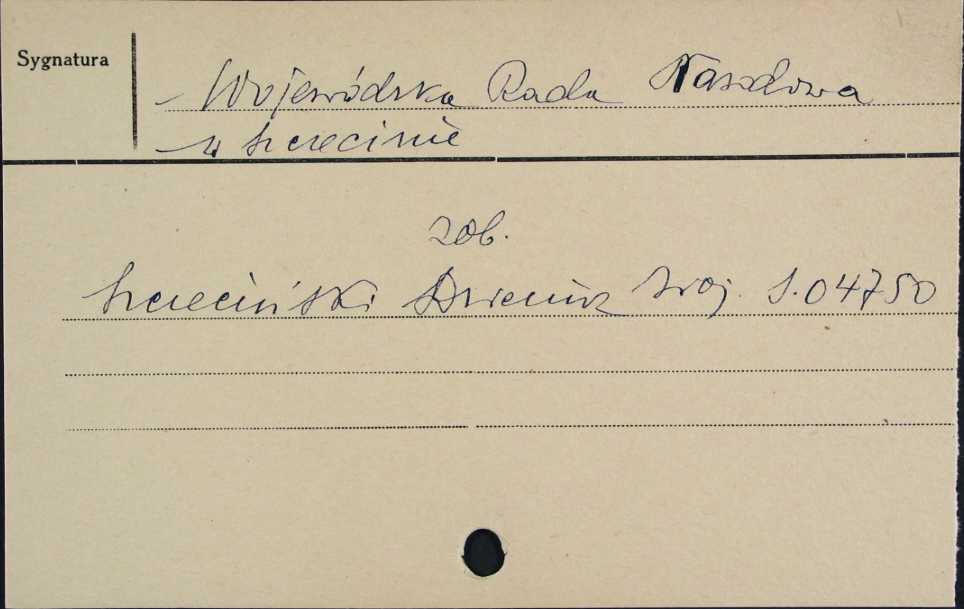 Sygnatura
Wojewódzka Rada Narodowa
w Szczecinie
zob.
Szczeciński Dziennik Woj. S.04750